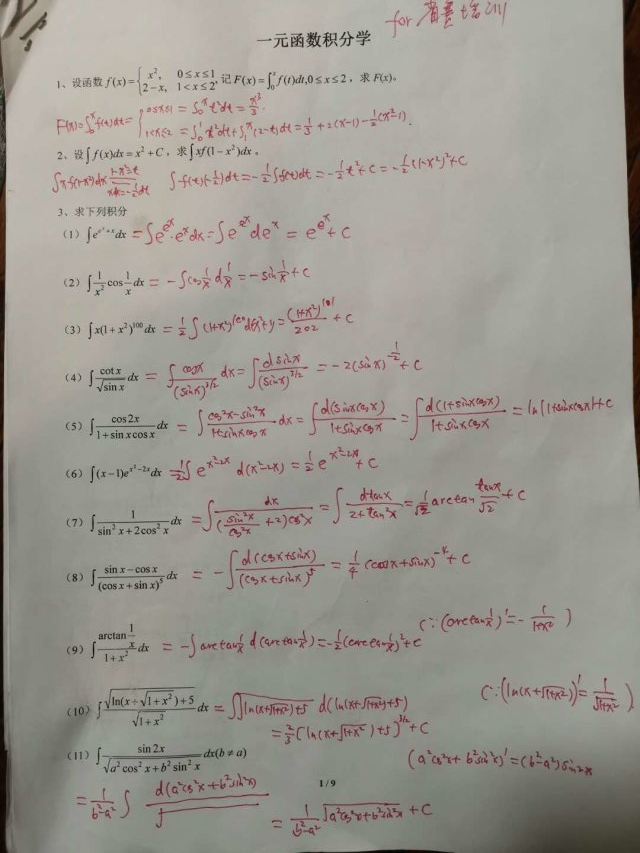 for
一元函数积分学
1、设函数 f(x)={x², 0≤x≤1; 2−x, 1<x≤2, 记 F(x)=∫₀ˣ f(t)dt, 0≤x≤2，求 F(x)。
F(x)=∫₀ˣ f(t)dt= { 0≤x≤1 = ∫₀ˣ t²dt = x³/3
1<x≤2 = ∫₀¹ t²dt+∫₁ˣ(2-t)dt = 1/3 + 2(x-1) - 1/2(x²-1).
2、设∫f(x)dx = x² + C，求∫xf(1−x²)dx。
∫x f(1-x²)dx 1-x²=t xdx=-1/2dt ∫f(t)(-1/2)dt = -1/2∫f(t)dt = -1/2 t²+C = -1/2(1-x²)²+C
3、求下列积分
（1）∫e^(eˣ+x)dx = ∫e^(eˣ)·eˣdx = ∫e^(eˣ)deˣ = e^(eˣ)+C
（2）∫1/x² cos 1/x dx = -∫cos 1/x d 1/x = -sin 1/x + C
（3）∫x(1+x²)¹⁰⁰dx = 1/2∫(1+x²)¹⁰⁰d(x²+1) = (1+x²)¹⁰¹/202 + C
（4）∫cot x/√(sin x) dx = ∫cosx/(sinx)^(3/2) dx = ∫dsinx/(sinx)^(3/2) = -2(sinx)^(-1/2)+C
（5）∫cos2x/(1+sin x cos x) dx = ∫(cos²x-sin²x)/(1+sinxcosx) dx = ∫d(sinxcosx)/(1+sinxcosx) = ∫d(1+sinxcosx)/(1+sinxcosx) = ln|1+sinxcosx|+C
（6）∫(x−1)e^(x²−2x)dx = 1/2∫e^(x²-2x) d(x²-2x) = 1/2 e^(x²-2x)+C
（7）∫1/(sin²x+2cos²x) dx = ∫dx/((sin²x/cos²x+2)cos²x) = ∫dtanx/(2+tan²x) = 1/√2 arctan tanx/√2 + C
（8）∫(sin x−cos x)/(cos x+sin x)⁵ dx = -∫d(cosx+sinx)/(cosx+sinx)⁵ = 1/4 (cosx+sinx)⁻⁴+C
（9）∫arctan(1/x)/(1+x²) dx = -∫arctan 1/x d(arctan 1/x) = -1/2(arctan 1/x)²+C (∵(arctan 1/x)'=-1/(1+x²))
（10）∫√(ln(x+√(1+x²))+5)/√(1+x²) dx = ∫√(ln(x+√(1+x²))+5) d(ln(x+√(1+x²))+5) (∵(ln(x+√(1+x²)))'=1/√(1+x²))
= 2/3[ln(x+√(1+x²))+5]^(3/2)+C
（11）∫sin2x/√(a²cos²x+b²sin²x) dx(b≠a) (a²cos²x+b²sin²x)'=(b²-a²)sin2x
= 1/(b²-a²) ∫ d(a²cos²x+b²sin²x)/√
1/9
= 1/(b²-a²) √(a²cos²x+b²sin²x) +C